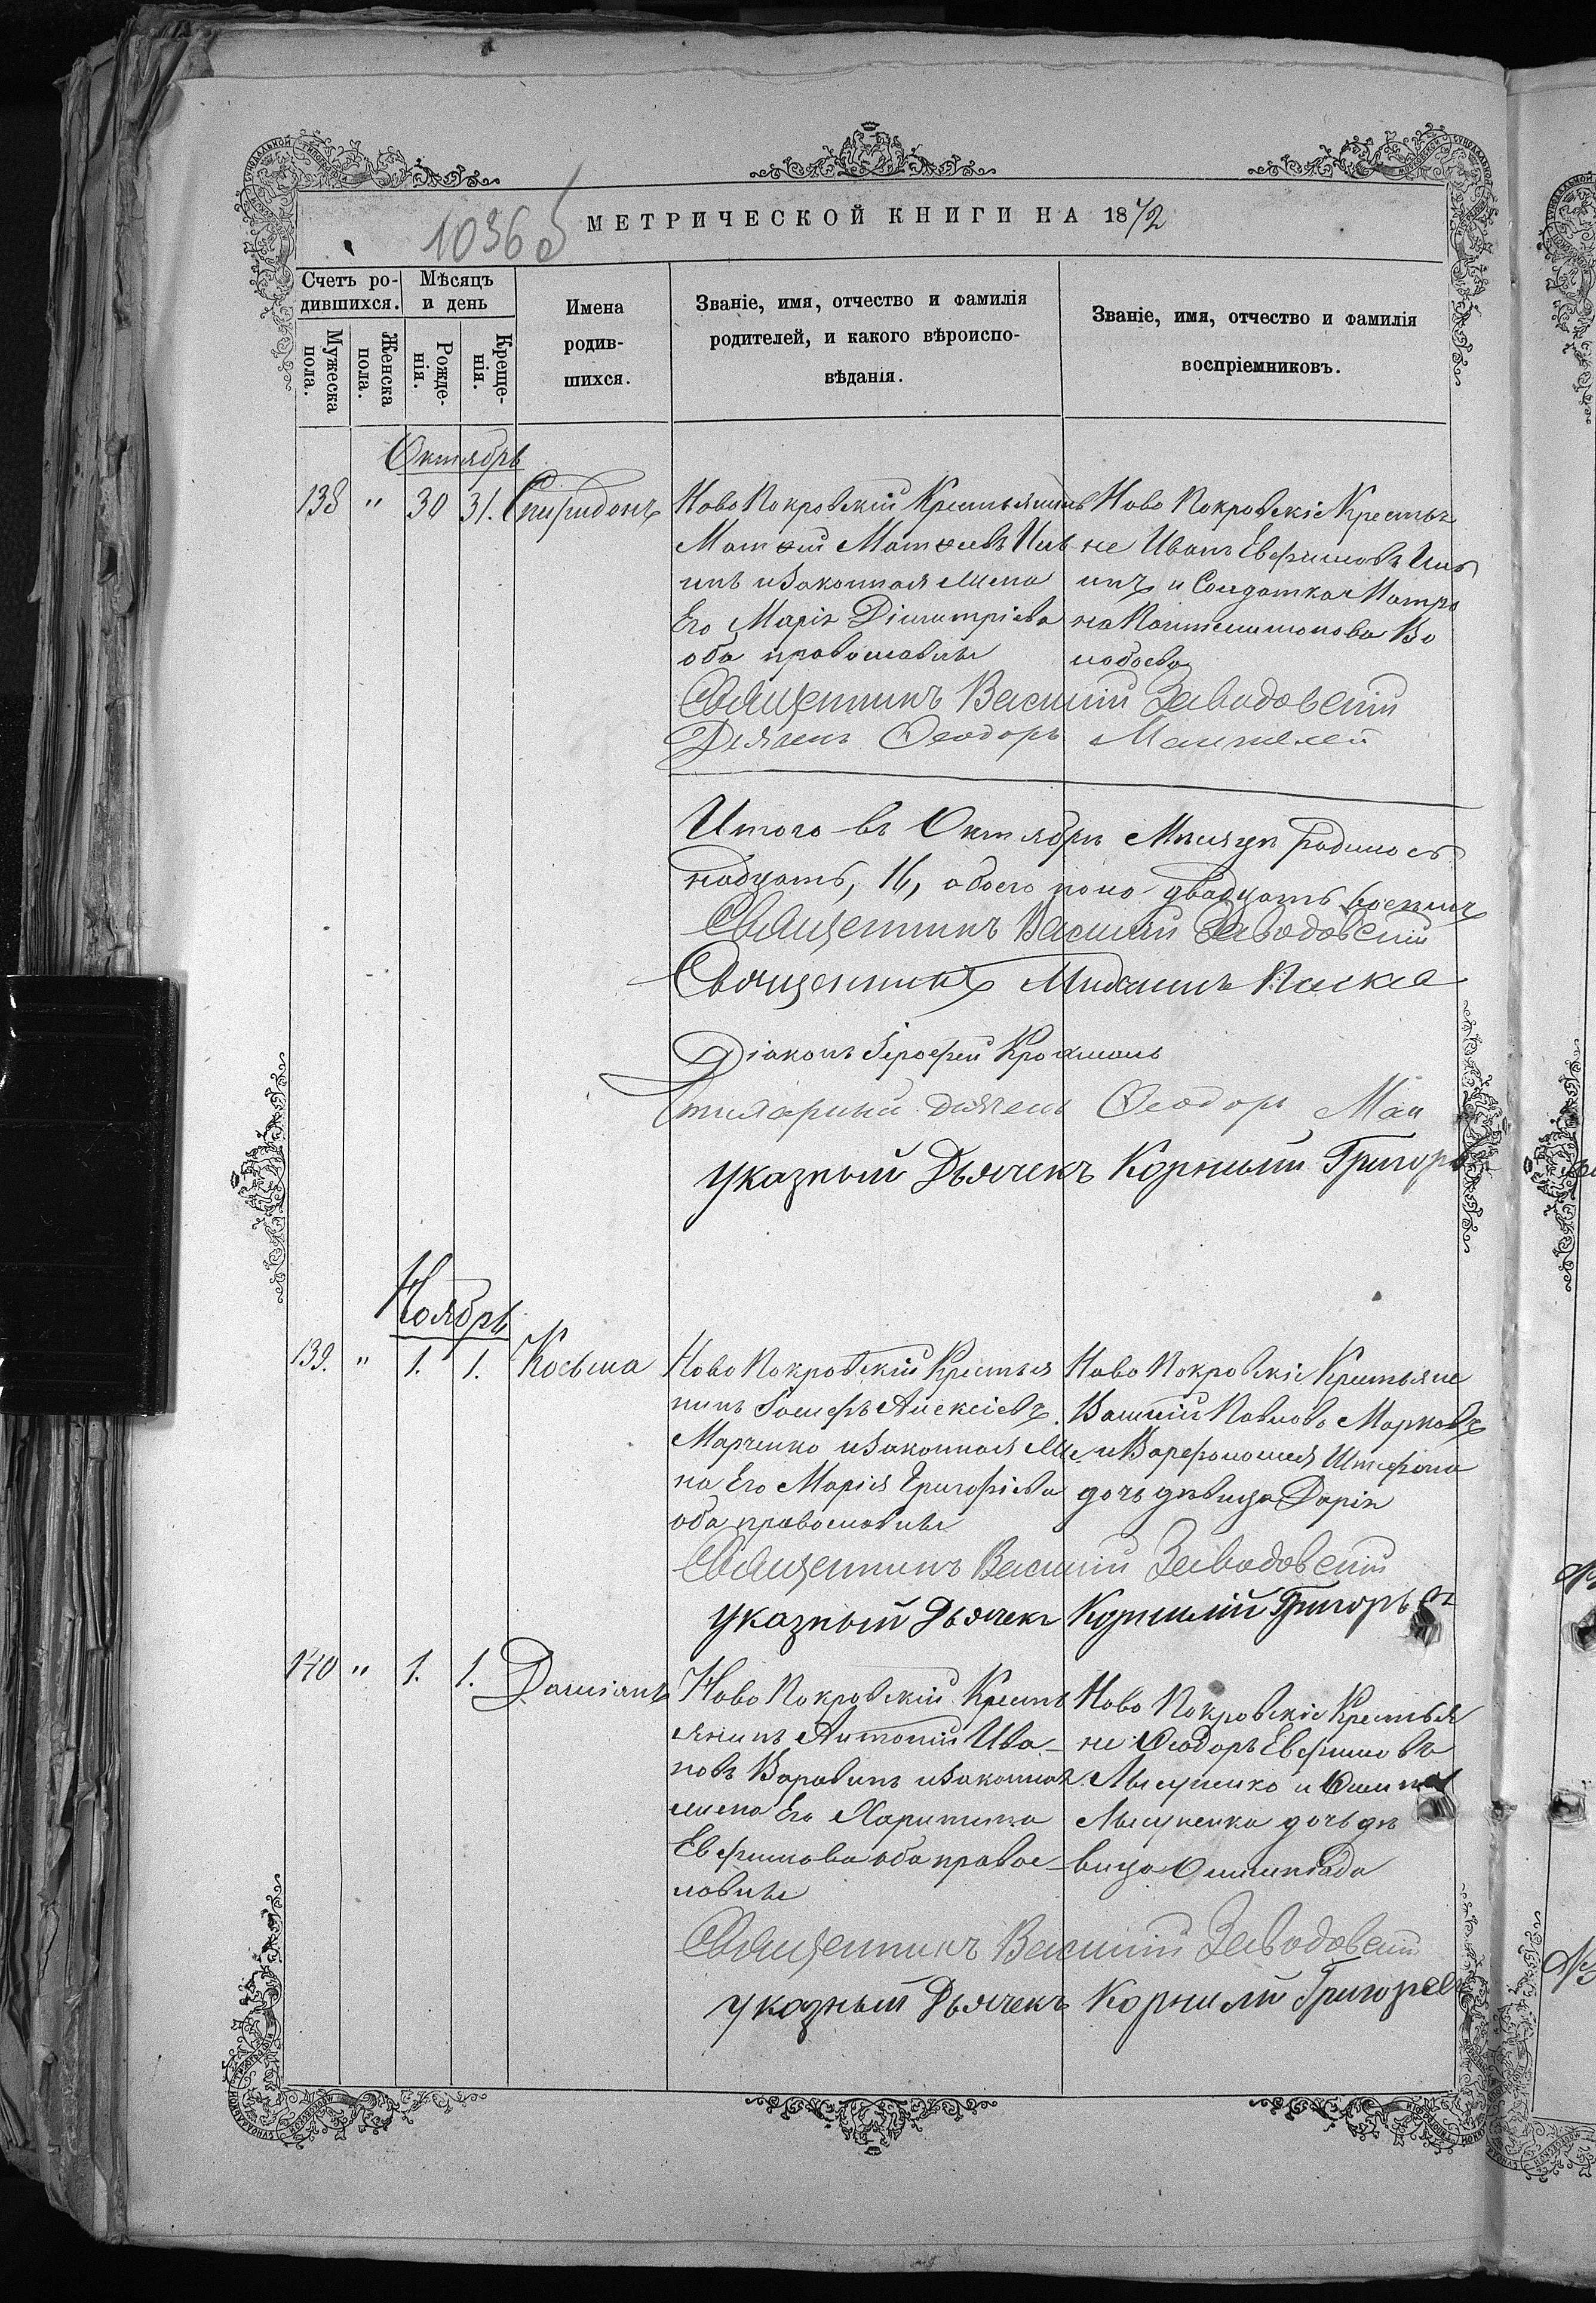 10366
МЕТРИЧЕСКОЙ КНИГИ НА 1872
Счетъ ро-
дившихся.
Мѣсяцъ
и день
Мужеска
пола.
Женска
пола.
Рожде-
нія.
Креще-
нія.
Имена
родив-
шихся.
Званіе, имя, отчество и фамилія
родителей, и какого вѣроиспо-
вѣданія.
Званіе, имя, отчество и фамилія
воспріемниковъ.
Октябрь
138 " 30 31. Спиридонъ
Ново Покровскій Крестьянинъ
Матѳій Матѳіевъ
инъ и Законная Жена
Его Марія Дімитріева
оба православны
Ново Покровскіе Крестья
не Иванъ Евфимовъ
инъ и Солдатка Матро
на Пантелимонова Во
лобоева
Священникъ Василій Заводовскій
Дьячекъ Ѳеодоръ
Итого въ Октябрѣ Мѣсяцѣ родилось
надцать, 16, обоего пола двадцать восемь
Священникъ Василій Заводовскій
Священникъ Михаилъ
Діаконъ Іерофей
Дьячекъ Ѳеодоръ
указный Дьячекъ Корнилій Григорь
Ноябрь
139. " 1. 1. Косьма
Ново Покровскій Крестья
нинъ Іосифъ Алексіевъ
Марченко и Законная Же
на Его Марія Григоріева
оба православны
Ново Покровскіе Крестьяне
Василій Павловъ Марковъ
и Варфоломея
дочь дѣвица Дарія
Священникъ Василій Заводовскій
указный Дьячекъ Корнилій Григорьев
140 " 1. 1. Даміанъ
Ново Покровскій Кресть
янинъ Антоній Ива-
новъ Варавинъ и Законная
жена Его Харитина
Евфимова оба правос-
лавны
Ново Покровскіе Крестья
не Ѳеодоръ Евфимовъ
Лысенко и
Лысенка дочь дѣ
вица Олимпіада
Священникъ Василій Заводовскій
указный Дьячекъ Корнилій Григорьев